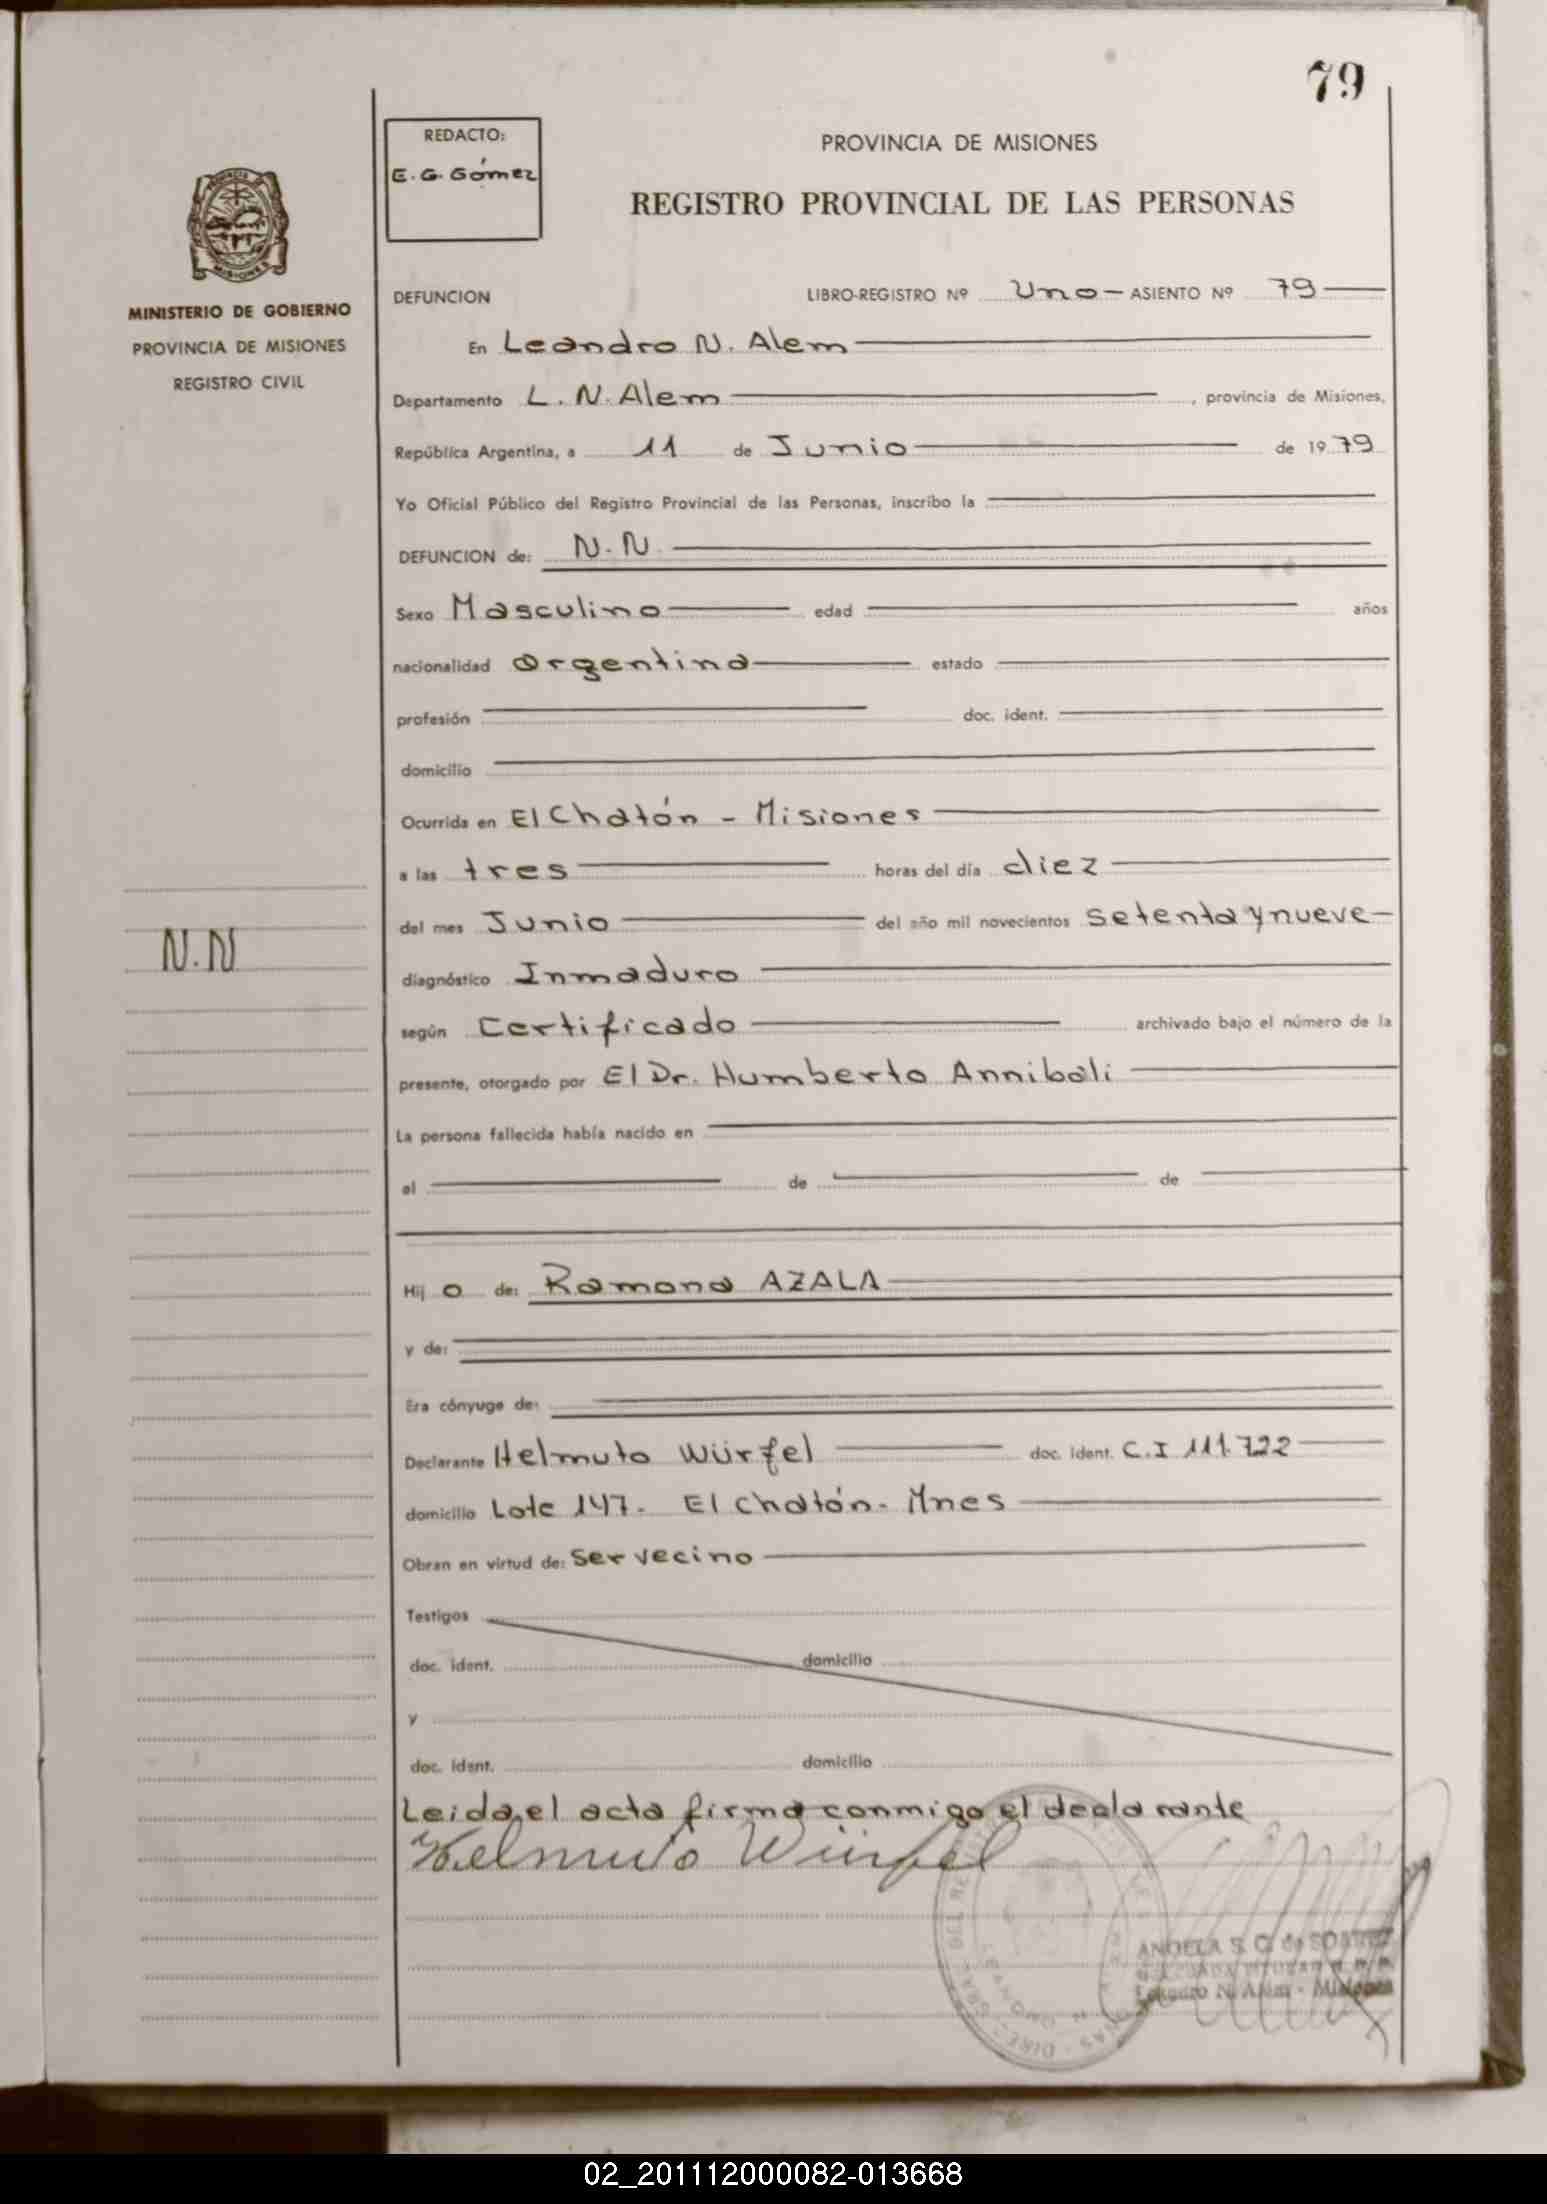 79
REDACTO:
E. G. Gómez
PROVINCIA DE MISIONES
REGISTRO PROVINCIAL DE LAS PERSONAS
MISIONES
MINISTERIO DE GOBIERNO
PROVINCIA DE MISIONES
REGISTRO CIVIL
DEFUNCION LIBRO-REGISTRO Nº Uno - ASIENTO Nº 79
En Leandro N. Alem
Departamento L. N. Alem, provincia de Misiones,
República Argentina, a 11 de Junio de 1979
Yo Oficial Público del Registro Provincial de las Personas, inscribo la
DEFUNCION de: N. N.
Sexo Masculino edad años
nacionalidad argentina estado
profesión doc. ident.
domicilio
Ocurrida en El Chatón - Misiones
a las tres horas del día diez
del mes Junio del año mil novecientos setenta y nueve
N.N
diagnóstico Inmaduro
según Certificado archivado bajo el número de la
presente, otorgado por El Dr. Humberto Annibali
La persona fallecida había nacido en
el de de
Hij o de: Ramona AZALA
y de:
Era cónyuge de:
Declarante Helmuto Würfel doc. ident. C.I 111.722
domicilio Lote 147. El Chatón - Mnes
Obran en virtud de: ser vecino
Testigos
doc. ident. domicilio
y
doc. ident. domicilio
Leida el acta firma conmigo el deala rante
Helmuto Würfel
ANGELA S. C. de
Leandro N. Alem - Misiones
02_201112000082-013668